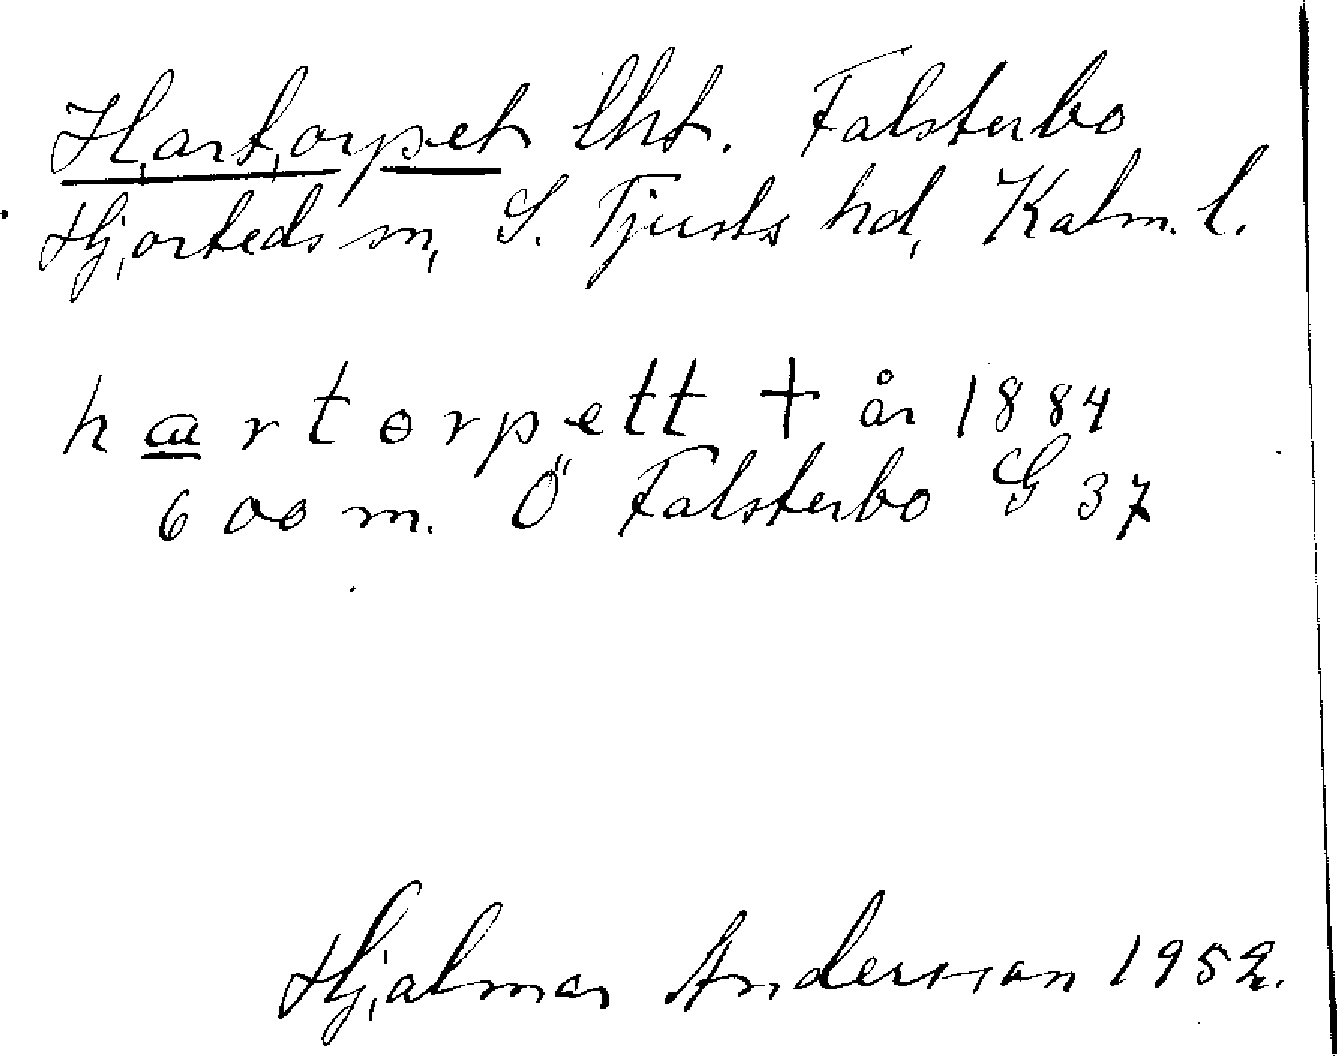 Hartorpet lht. Falsterbo
Hjorteds sn, S. Tjusts hd, Kalm. l.
hartorpett † år 1884
600 m. Ö Falsterbo G 37
Hjalmar Andersson 1952.